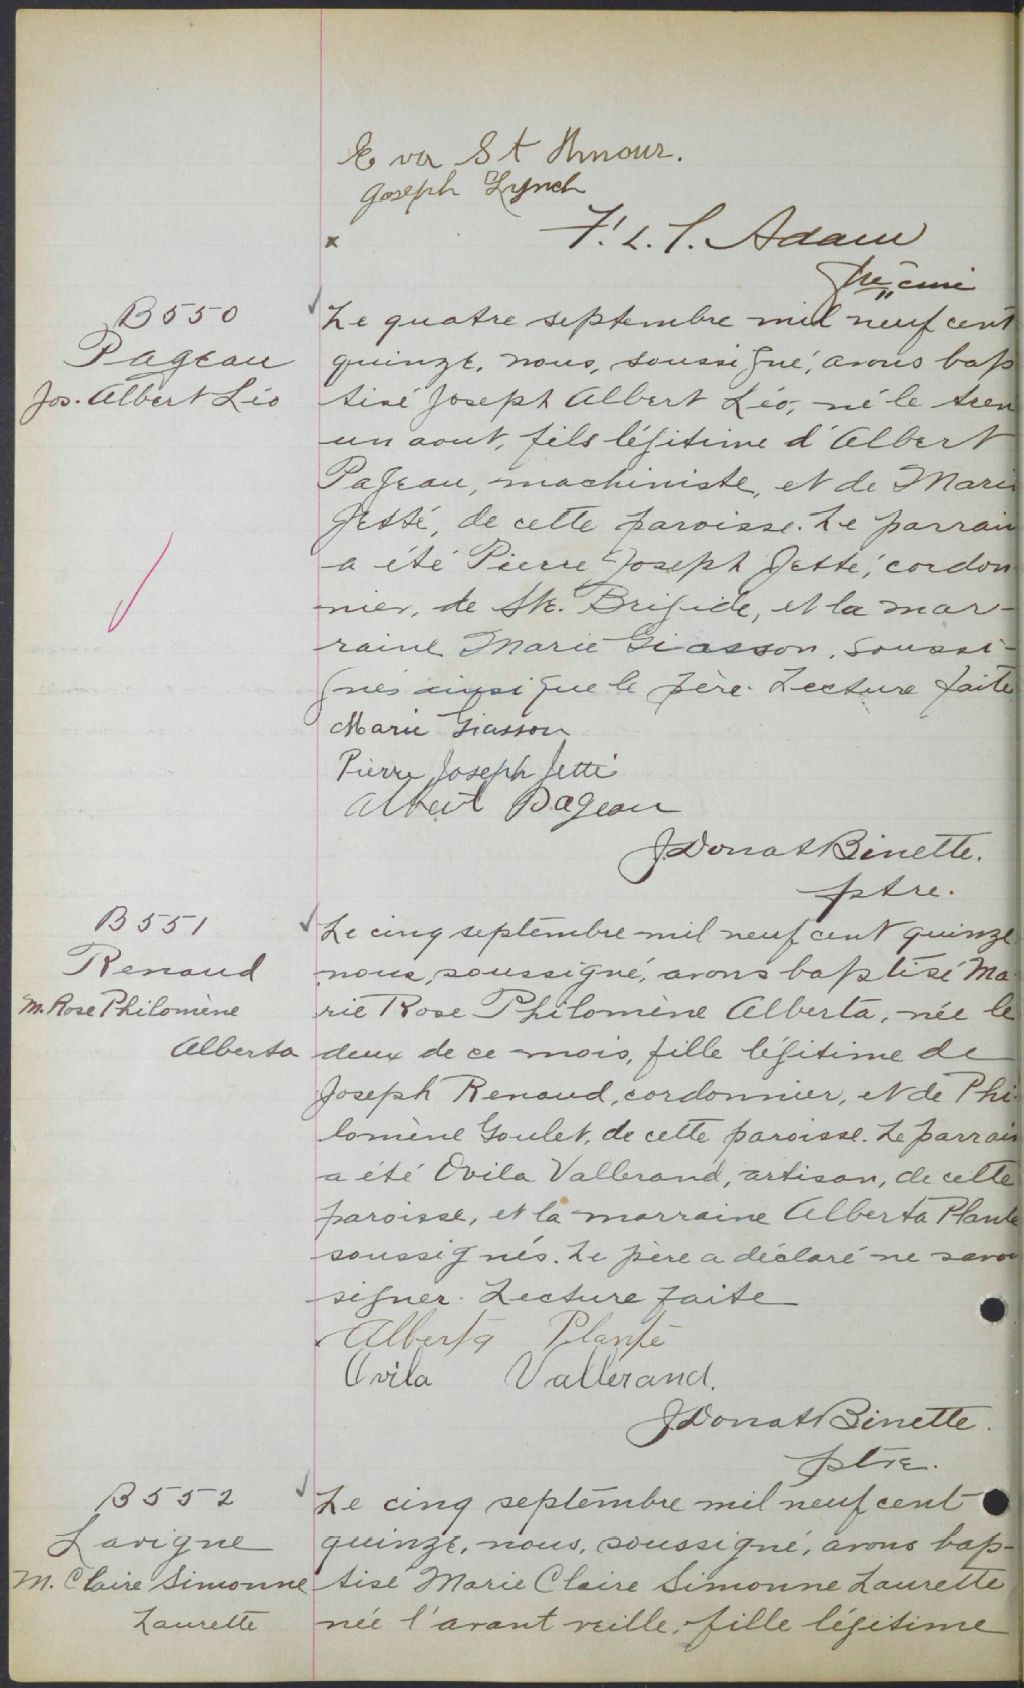 Eva St Amour.
Joseph Lynch
x
F. L. T. Adam
Ptre curé
B 550
Pageau
Jos. Albert Léo
Le quatre septembre mil neuf cent
quinze, nous, soussigné, avons bap
tisé Joseph Albert Léo, né le tren
un aout, fils légitime d'Albert
Pageau, machiniste, et de Marie
Jetté, de cette paroisse. Le parrain
a été Pierre-Joseph Jetté, cordon
nier, de Ste. Brigide, et la mar-
raine Marie Giasson, soussi-
gnés ainsi que le père. Lecture faite
Marie Giasson
Pierre Joseph Jetté
Albert Pageau
J. Donat Binette.
ptre.
B 551
Renaud
M. Rose Philomène
Alberta
Le cinq septembre mil neuf cent quinze
nous, soussigné, avons baptisé Ma
rie Rose Philomène Alberta, née le
deux de ce mois, fille légitime de
Joseph Renaud, cordonnier, et de Phi-
lomène Goulet, de cette paroisse. Le parrain
a été Ovila Vallerand, artisan, de cette
paroisse, et la marraine Alberta Plante
soussignés. Le père a déclaré ne savoi
signer. Lecture faite
Alberta Plante
Ovila Vallerand.
J. Donat Binette.
ptre.
B 552
Lavigne
M. Claire Simonne
Laurette
Le cinq septembre mil neuf cent
quinze, nous, soussigné, avons bap-
tisé Marie Claire Simonne Laurette
née l'avant veille, fille légitime